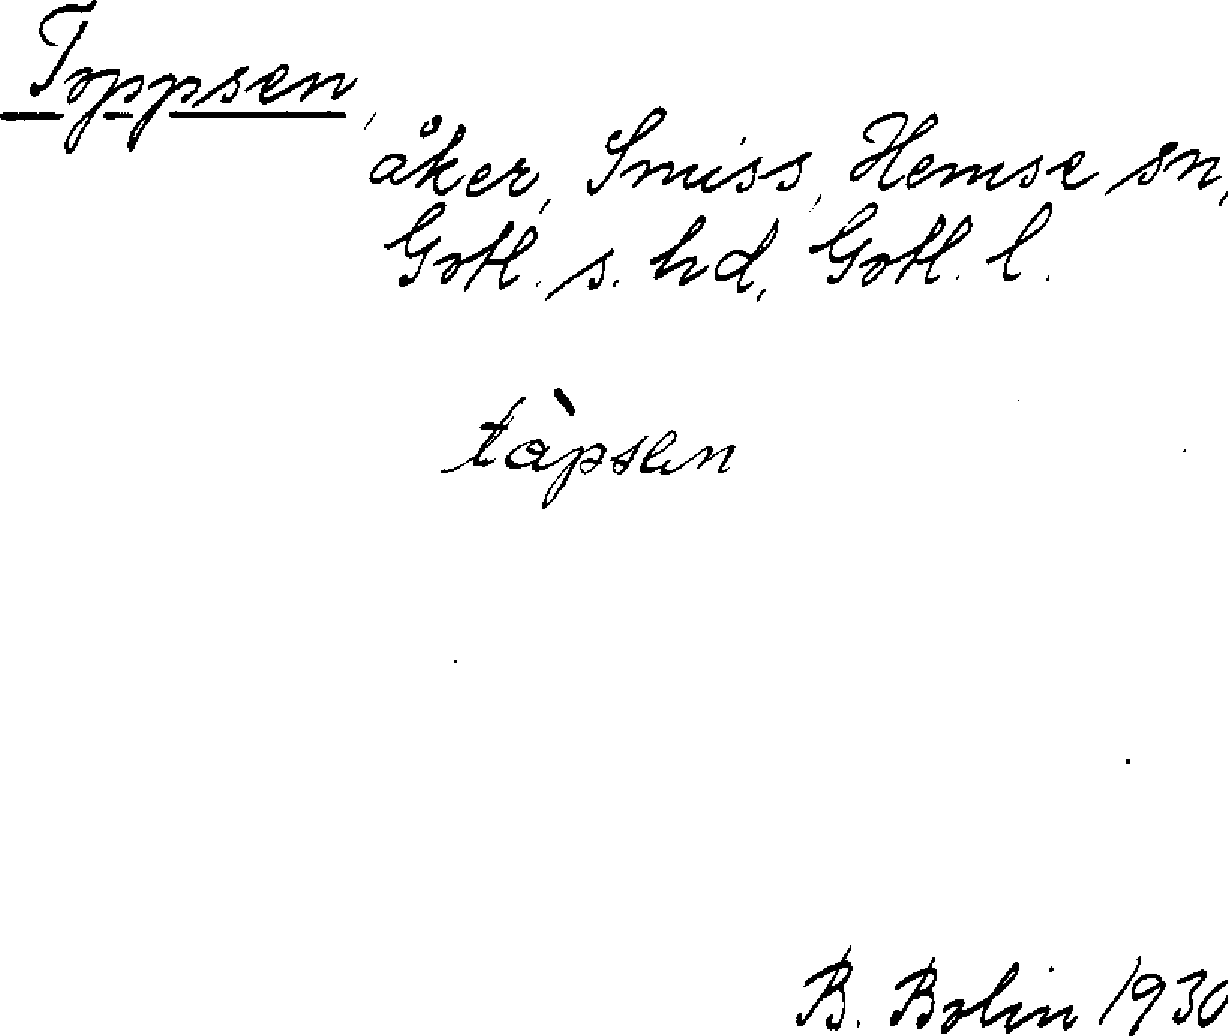 Toppsen,
åker, Smiss, Hemse sn,
Gotl. s. hd, Gotl. l.
tàpsen
B. Bolin 1930